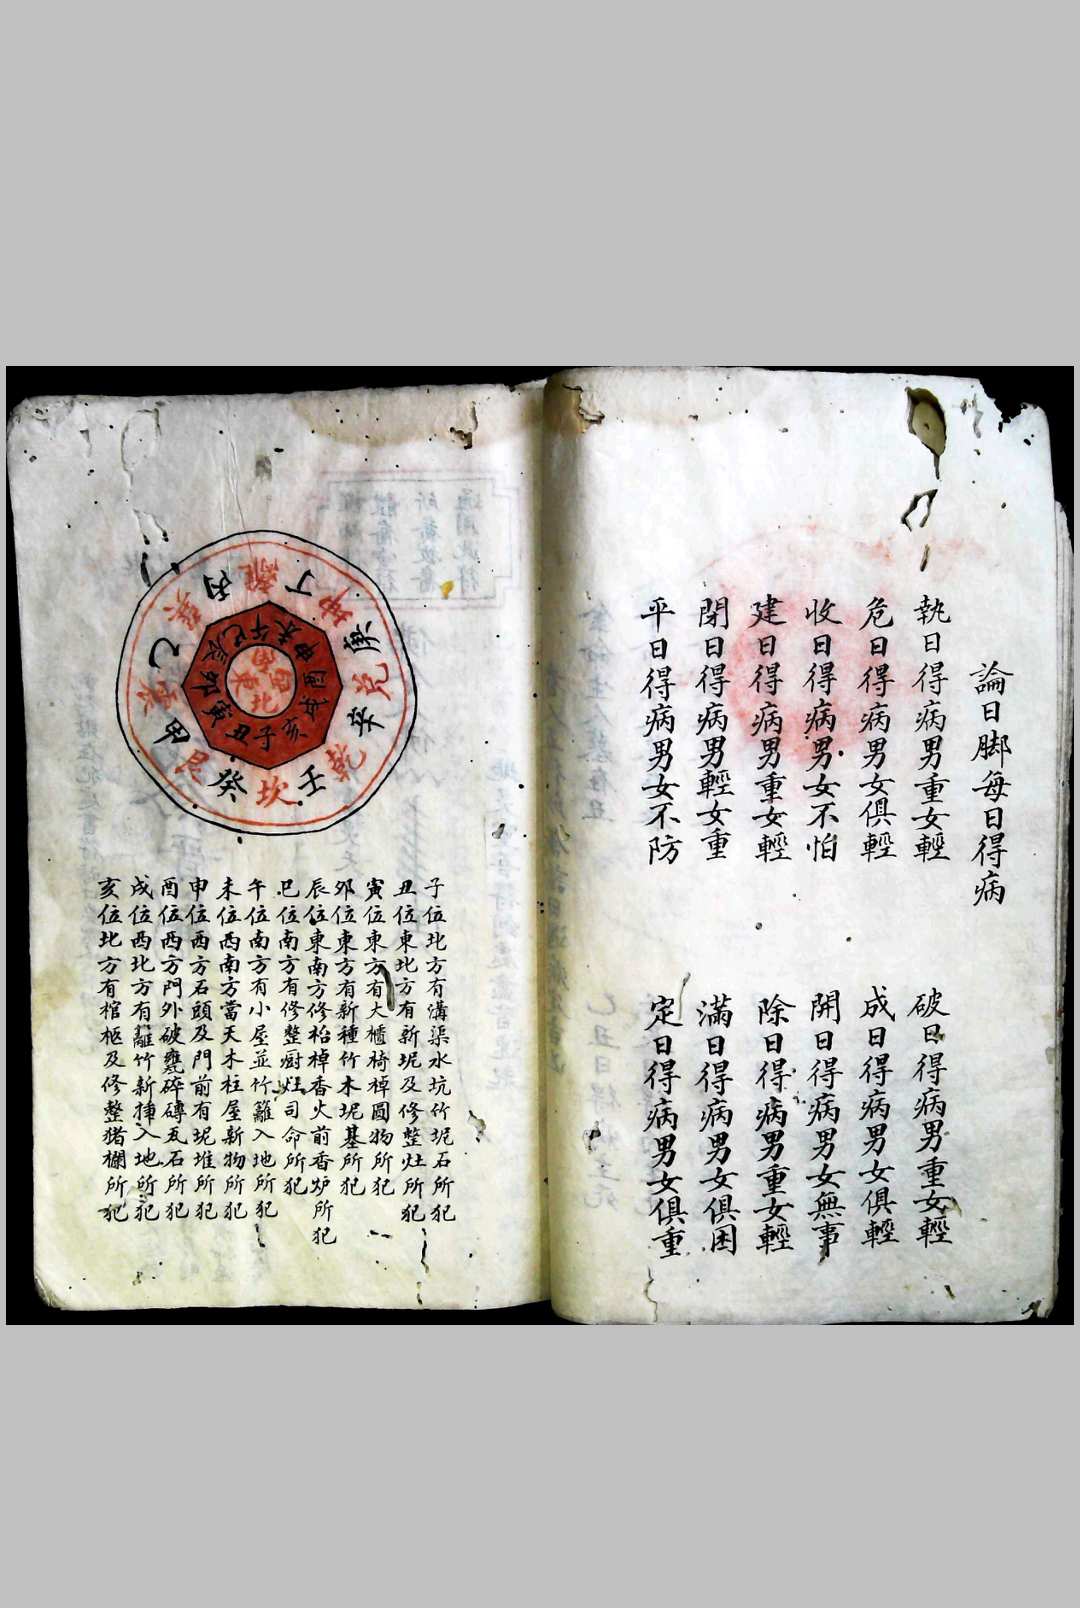 論日脚每日得病
執日得病男重女輕
破日得病男重女輕
危日得病男女俱輕
成日得病男女俱輕
收日得病男女不怕
開日得病男女無事
建日得病男重女輕
除日得病男重女輕
閉日得病男輕女重
滿日得病男女俱困
平日得病男女不防
定日得病男女俱重
離丁坤庚兌辛乾壬坎癸艮甲震乙巽丙
午未申酉戌亥子丑寅卯辰巳
南西北東
子位北方有溝渠水坑竹坭石所犯
丑位東北方有新坭及修整灶所犯
寅位東方有大櫃椅棹圓物所犯
卯位東方有新種竹木坭基所犯
辰位東南方修枱棹香火前香炉所犯
巳位南方有修整廚灶司命所犯
午位南方有小屋並竹籬入地所犯
未位西南方當天木柱屋新物所犯
申位西方石頭及門前有坭堆所犯
酉位西方門外破甕碎磚瓦石所犯
戌位西北方有籬竹新揷入地所犯
亥位北方有棺柩及修整猪欄所犯